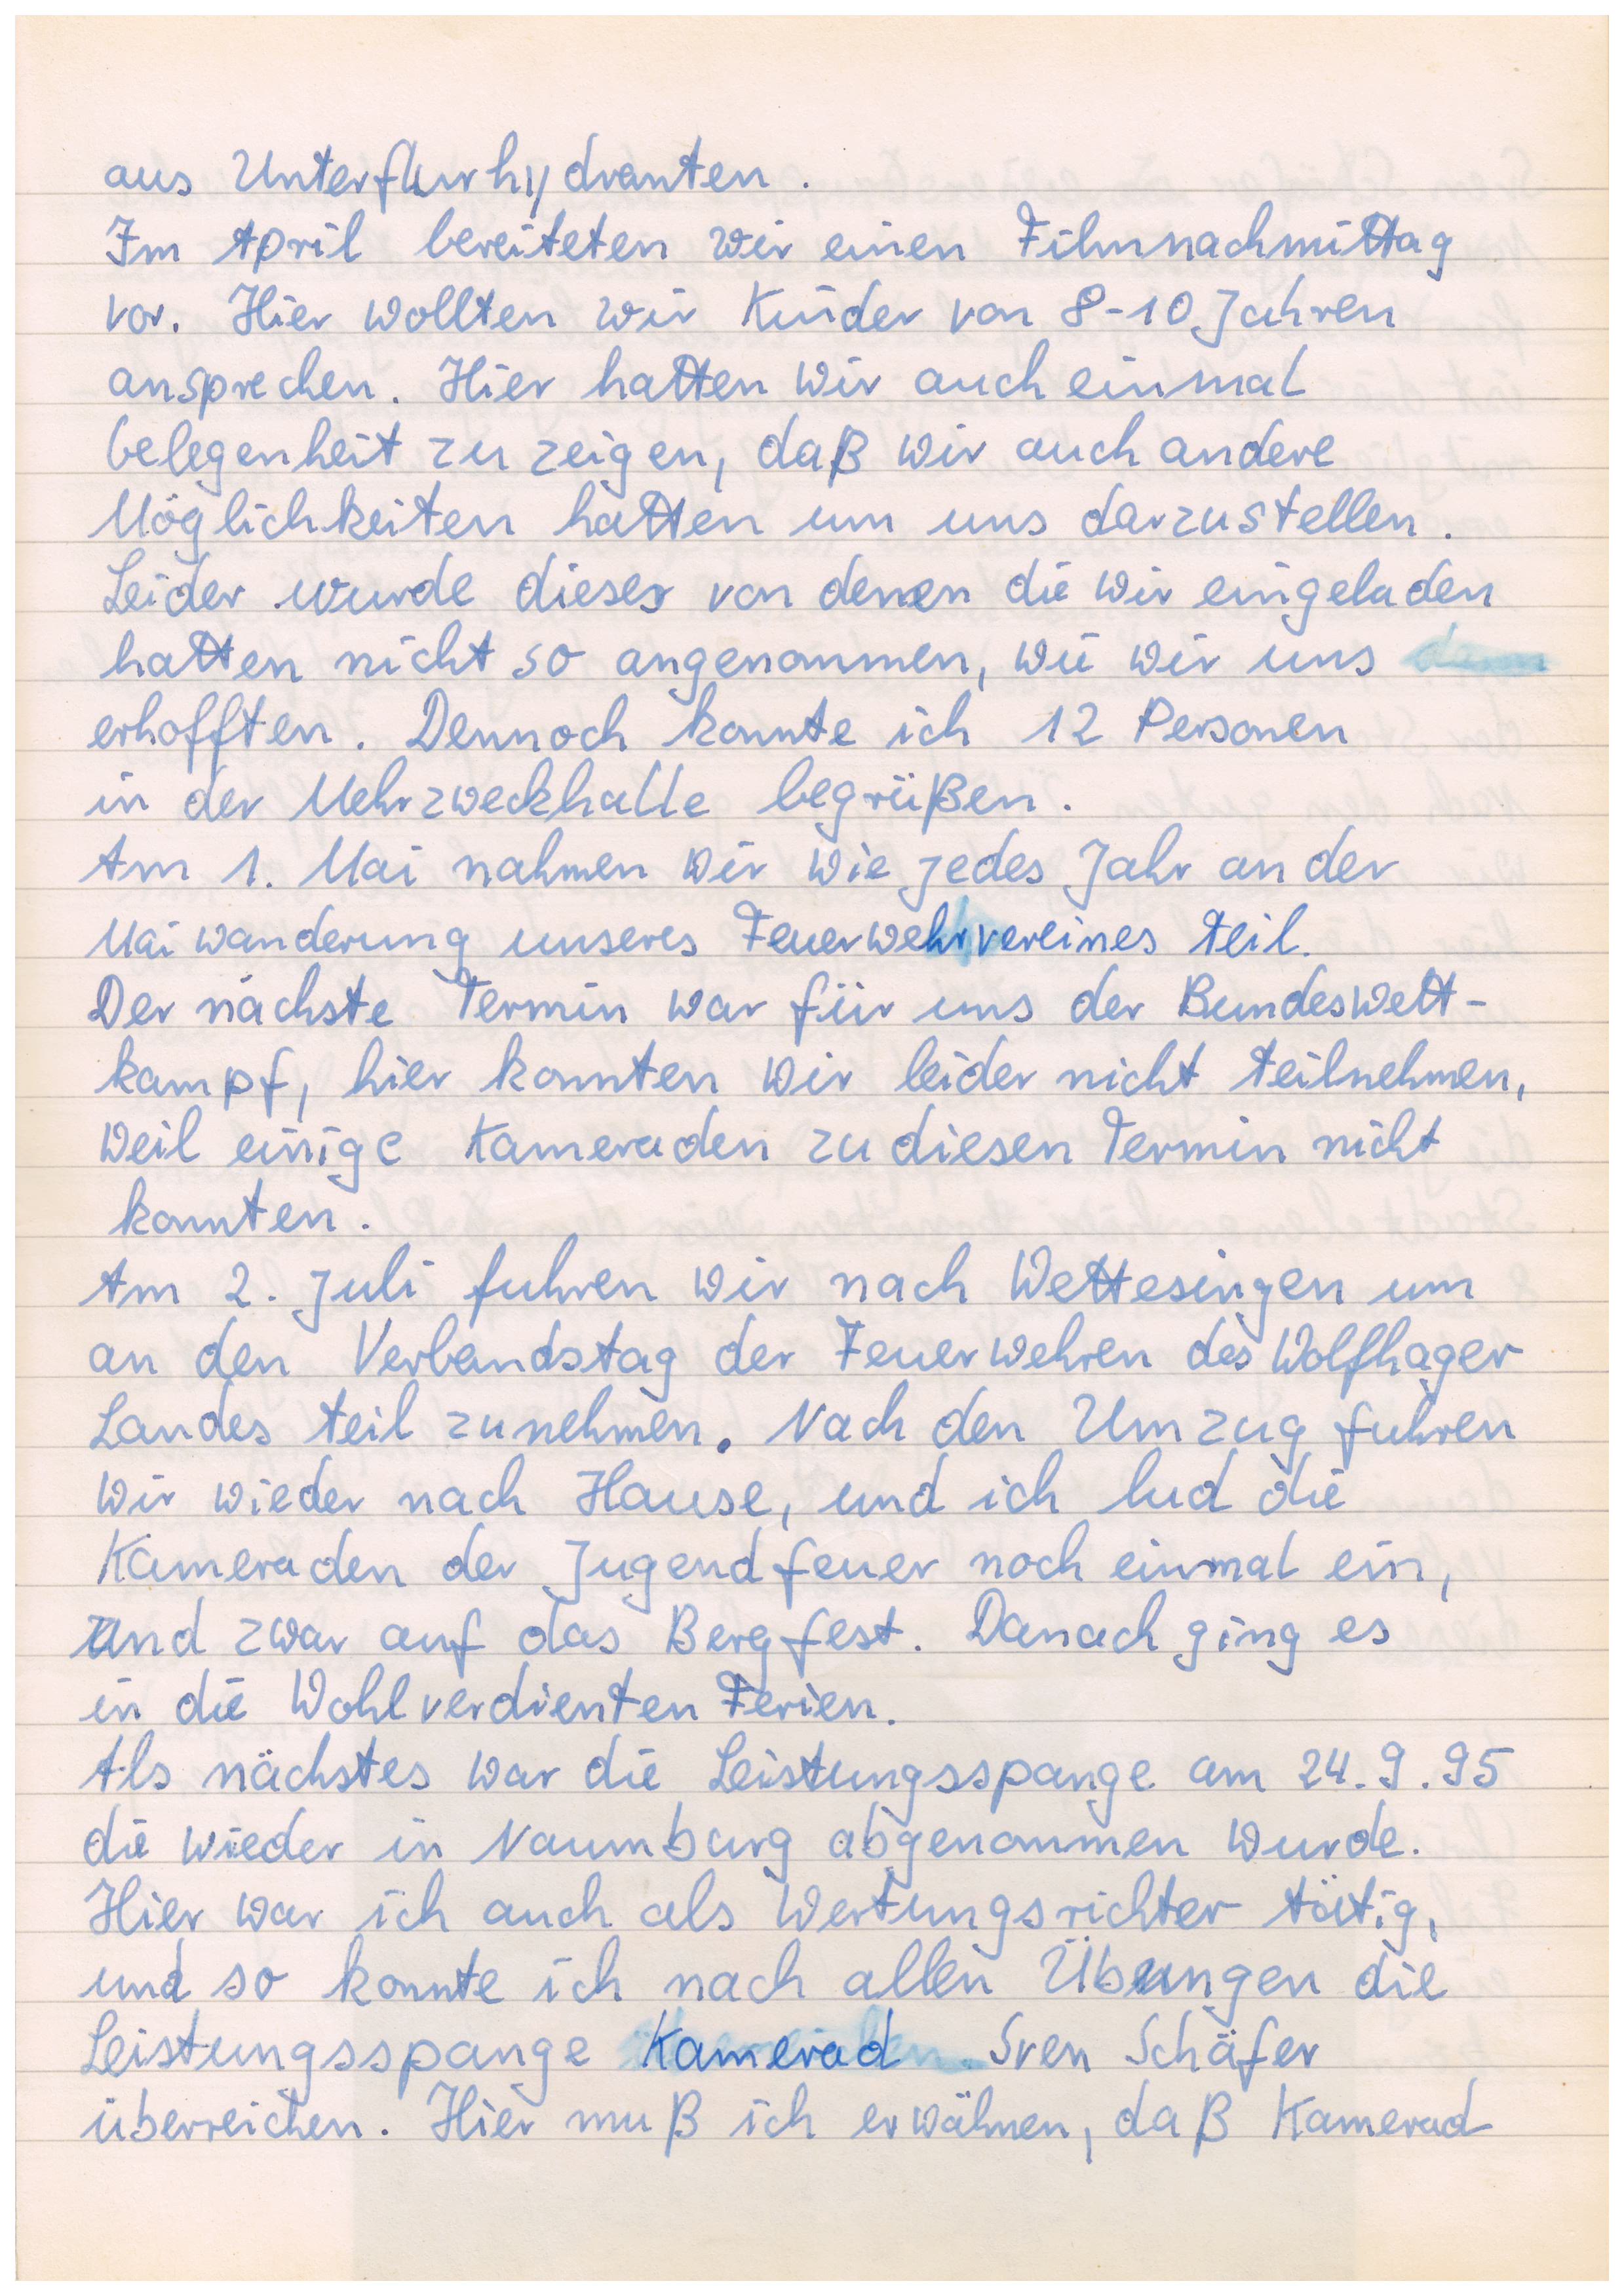 aus Unterflurhydranten.
Im April bereiteten wir einen Filmnachmittag
vor. Hier wollten wir Kinder von 8-10 Jahren
ansprechen. Hier hatten wir auch einmal
Gelegenheit zu zeigen, daß wir auch andere
Möglichkeiten hatten um uns darzustellen.
Leider wurde dieses von denen die wir eingeladen
hatten nicht so angenommen, wie wir uns
erhofften. Dennoch konnte ich 12 Personen
in der Mehrzweckhalle begrüßen.
Am 1. Mai nahmen wir wie jedes Jahr an der
Maiwanderung unseres Feuerwehrvereines teil.
Der nächste Termin war für uns der Bundeswett-
kampf, hier konnten wir leider nicht teilnehmen,
weil einige Kameraden zu diesen Termin nicht
konnten.
Am 2. Juli fuhren wir nach Wettesingen um
an den Verbandstag der Feuerwehren des Wolfhager
Landes teil zunehmen. Nach den Umzug fuhren
wir wieder nach Hause, und ich lud die
Kameraden der Jugendfeuer noch einmal ein,
und zwar auf das Bergfest. Danach ging es
in die Wohlverdienten Ferien.
Als nächstes war die Leistungsspange am 24.9.95
die wieder in Naumburg abgenommen wurde.
Hier war ich auch als Wertungsrichter tätig,
und so konnte ich nach allen Übungen die
Leistungsspange Kamerad Sven Schäfer
überreichen. Hier muß ich erwähnen, daß Kamerad